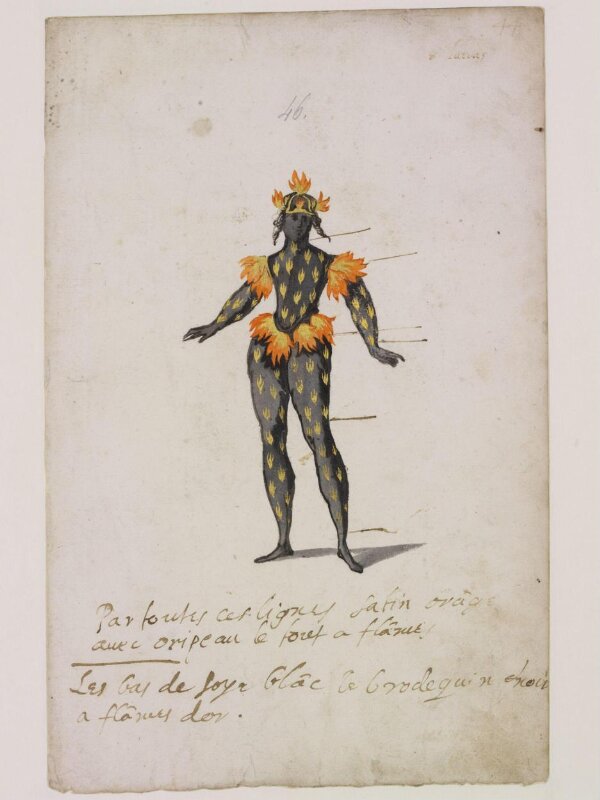 46.
Par toutes ces lignes satin orãge
avec oripeau le tout a flãmes
Les bas de soye blãc le brodequin
a flãmes dor.